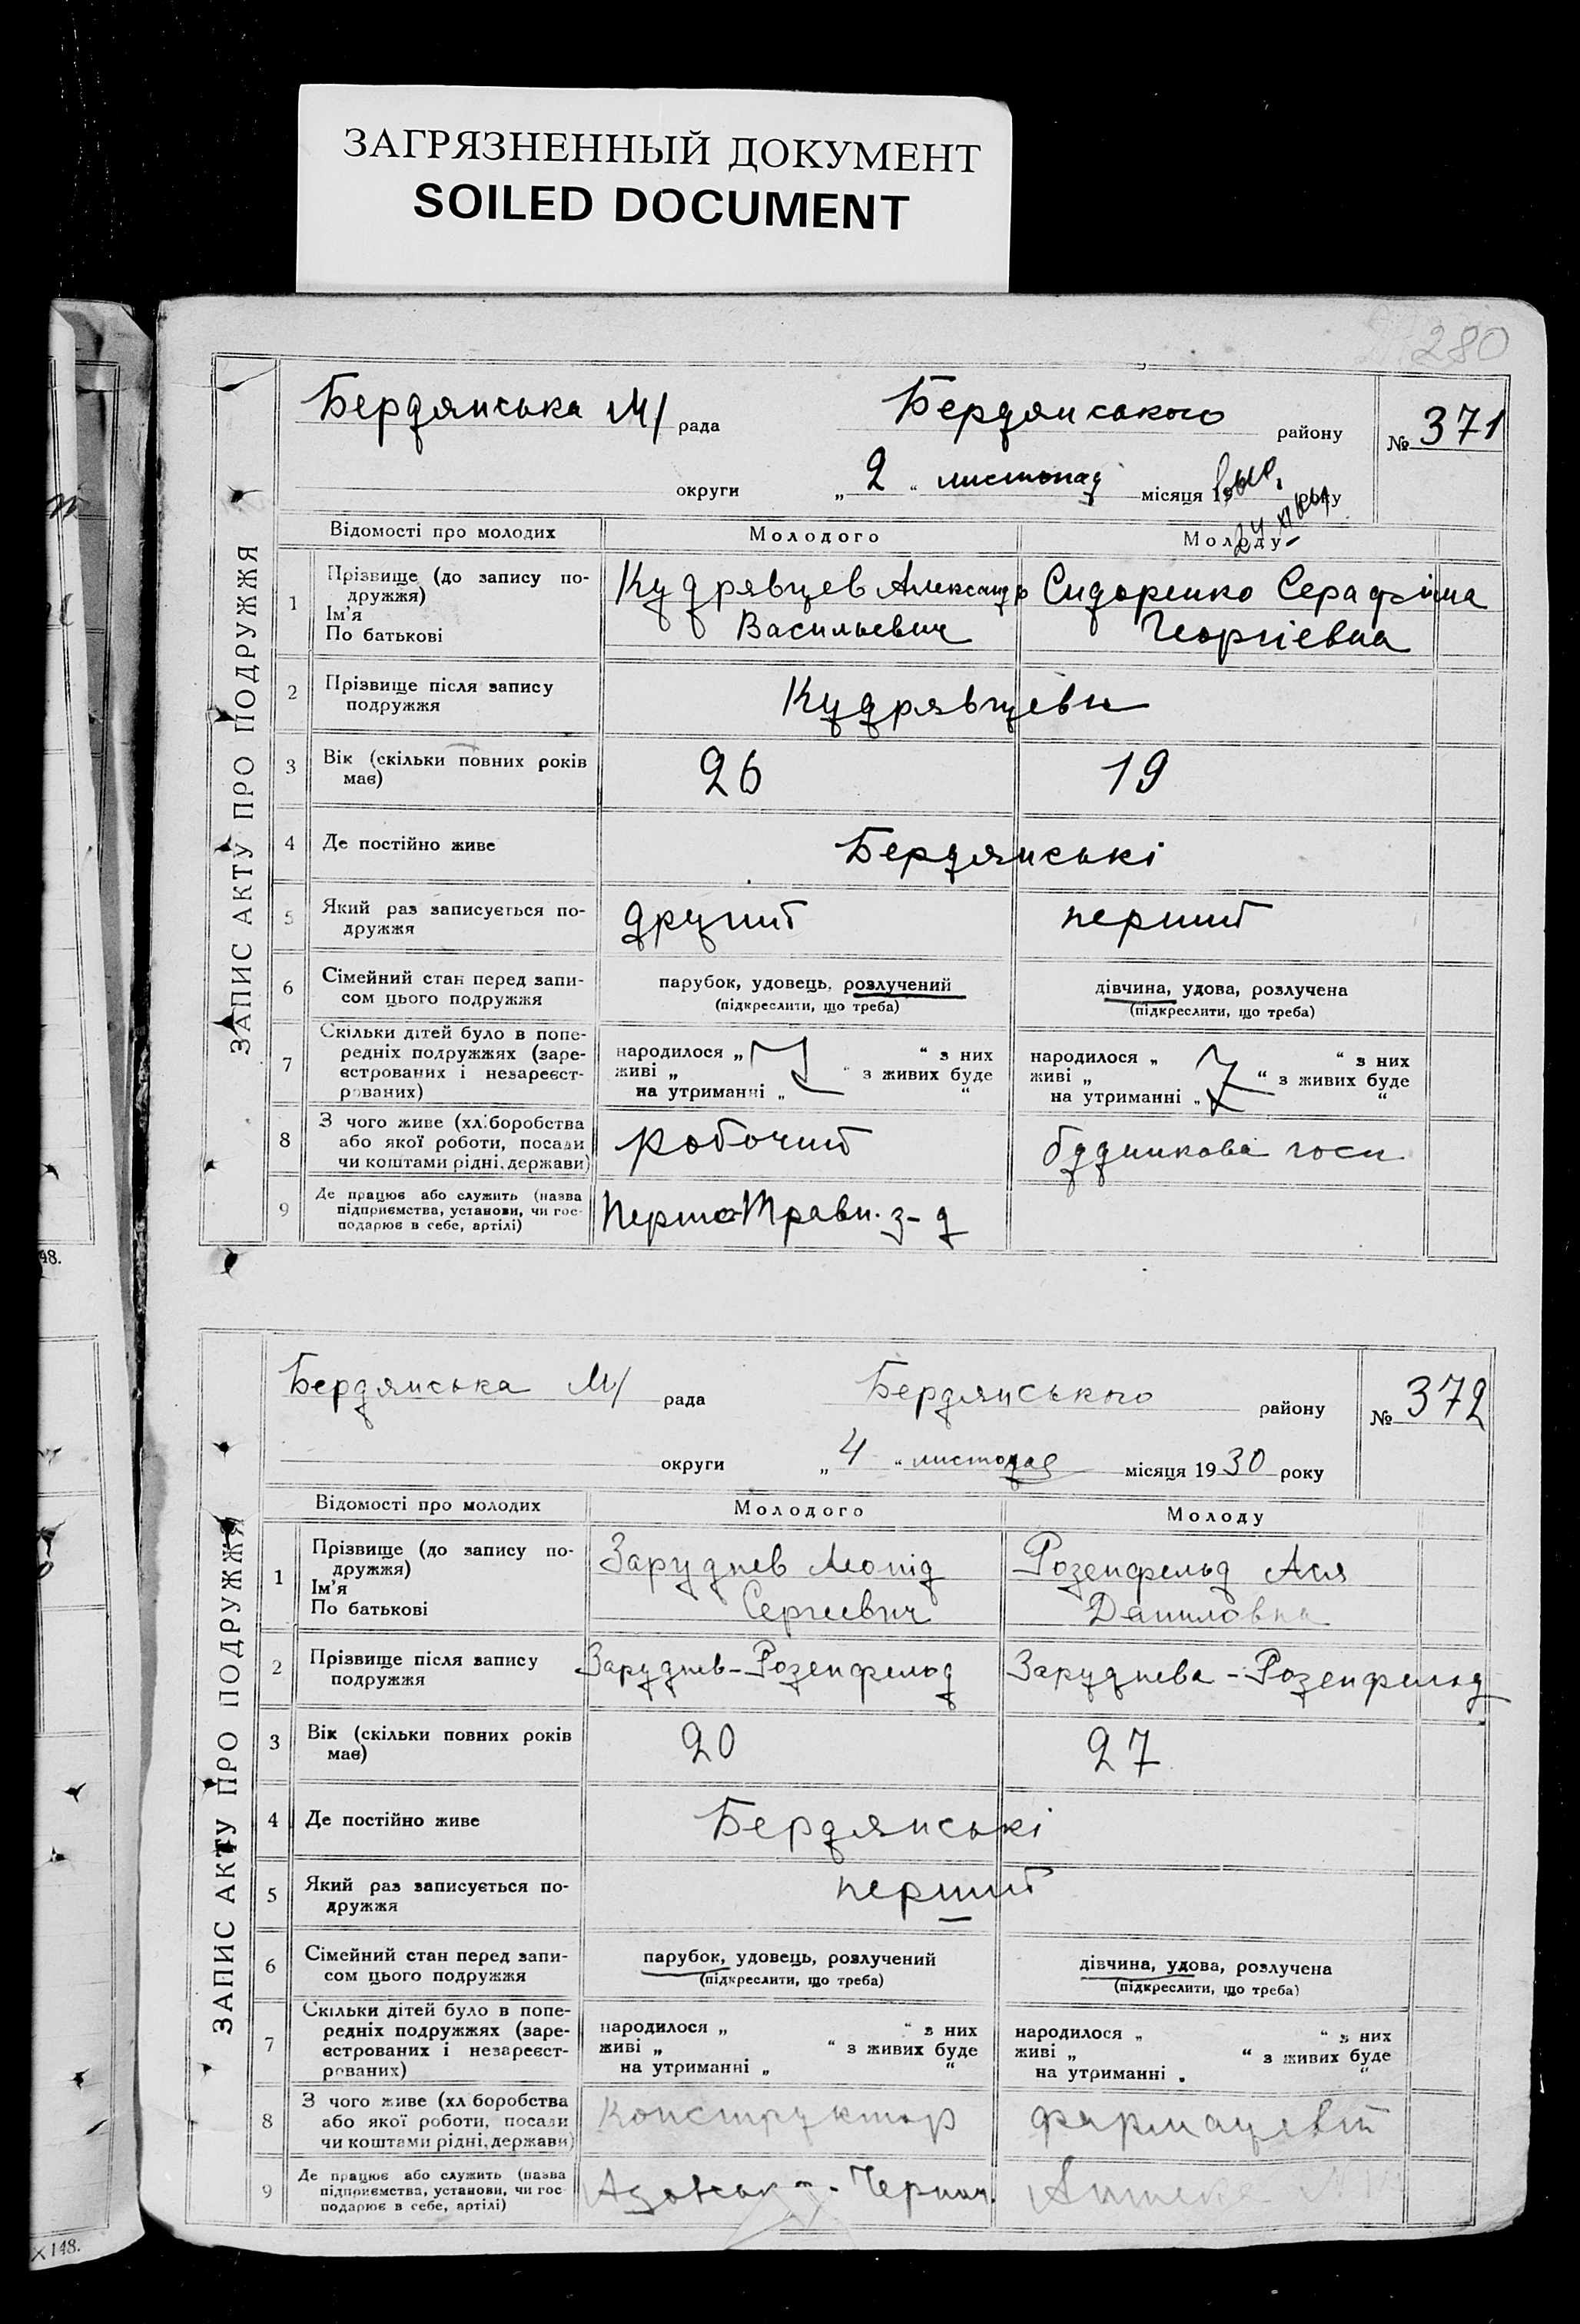 ЗАГРЯЗНЕННЫЙ ДОКУМЕНТ
SOILED DOCUMENT
280
ЗАПИС АКТУ ПРО ПОДРУЖЖЯ
Бердянська М/ рада Бердянського району № 371
округи „2“ листопад місяця року
Відомості про молодих Молодого Молоду
1 Прізвище (до запису по-
дружжя)
Ім'я
По батькові
Кудрявцев Александр
Васильевич
Сидоренко Серафіма
Георгіевна
2 Прізвище після запису
подружжя
Кудрявцеви
3 Вік (скільки повних років
має)
26 19
4 Де постійно живе Бердянські
5 Який раз записується по-
дружжя
другий перший
6 Сімейний стан перед запи-
сом цього подружжя
парубок, удовець, розлучений
(підкреслити, що треба)
дівчина, удова, розлучена
(підкреслити, що треба)
7 Скільки дітей було в попе-
редніх подружжях (заре-
єстрованих і незареєст-
рованих)
народилося „ “ з них
живі „ “ з живих буде
на утриманні „ “
народилося „ “ з них
живі „ “ з живих буде
на утриманні „ “
8 З чого живе (хліборобства
або якої роботи, посади
чи коштами рідні, держави)
робочий будинкова госп
9 Де працює або служить (назва
підприємства, установи, чи гос-
подарює в себе, артілі)
Першо-Травн. з-д
ЗАПИС АКТУ ПРО ПОДРУЖЖЯ
Бердянська М/ рада Бердянського району № 372
округи „4“ листопад місяця 1930 року
Відомості про молодих Молодого Молоду
1 Прізвище (до запису по-
дружжя)
Ім'я
По батькові
Заруднев Леонід
Сергеевич
Розенфельд Ася
Даниловна
2 Прізвище після запису
подружжя
Заруднев-Розенфельд Заруднева-Розенфельд
3 Вік (скільки повних років
має)
20 27
4 Де постійно живе Бердянські
5 Який раз записується по-
дружжя
перший
6 Сімейний стан перед запи-
сом цього подружжя
парубок, удовець, розлучений
(підкреслити, що треба)
дівчина, удова, розлучена
(підкреслити, що треба)
7 Скільки дітей було в попе-
редніх подружжях (заре-
єстрованих і незареєст-
рованих)
народилося „ “ з них
живі „ “ з живих буде
на утриманні „ “
народилося „ “ з них
живі „ “ з живих буде
на утриманні „ “
8 З чого живе (хліборобства
або якої роботи, посади
чи коштами рідні, держави)
конструктор фармацевт
9 Де працює або служить (назва
підприємства, установи, чи гос-
подарює в себе, артілі)
Черном. Аптека
48.
148.